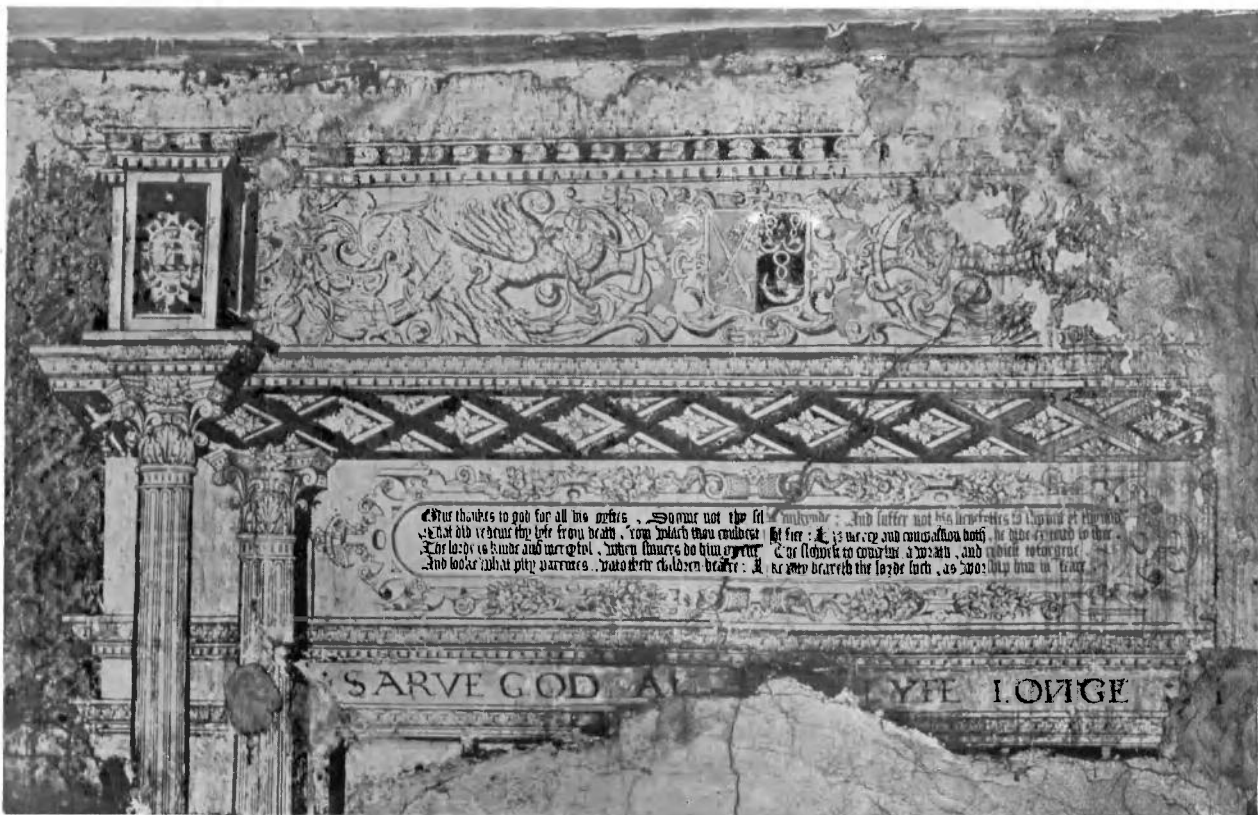 Giue thankes to god for all his gyftes , not thy sel vnkynde : And suffer not his benefittes to
That did redeme thy lyfe from death , from which thou couldest not flee : mercy and compassion both , he dide extend to thee .
The lorde is kinde and mercyful , when sinners do him greue The slowest to conceiue a wrath , and rediest to forgeue .
And looke what pity parentes , vnto their children beare : Like pity beareth the lorde such , as worship him in feare .
SARVE GOD AL LYFE LONGE